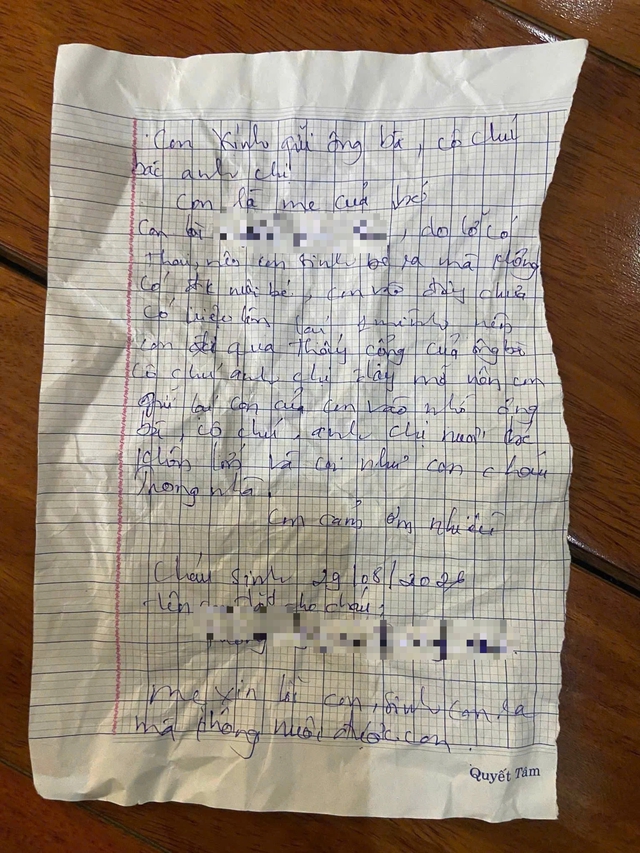 Con kính gửi ông bà, cô chú
bác anh chị
Con là mẹ của bé
Con , do lỡ có
thai, nên con sinh bé ra mà không
có đk nuôi bé, con vào đây
có
con đi qua thấy cổng của ông bà
cô chú anh chị đây mở nên con
gửi lại con của con vào nhờ ông
bà, cô chú, anh chị nuôi bé
khôn lớn và coi như con cháu
trong nhà.
Con cảm ơn nhiều
Cháu sinh 29/08/202
tên đặt cho cháu:
Mẹ xin lỗi con, sinh con ra
mà không nuôi được con.
Quyết Tâm